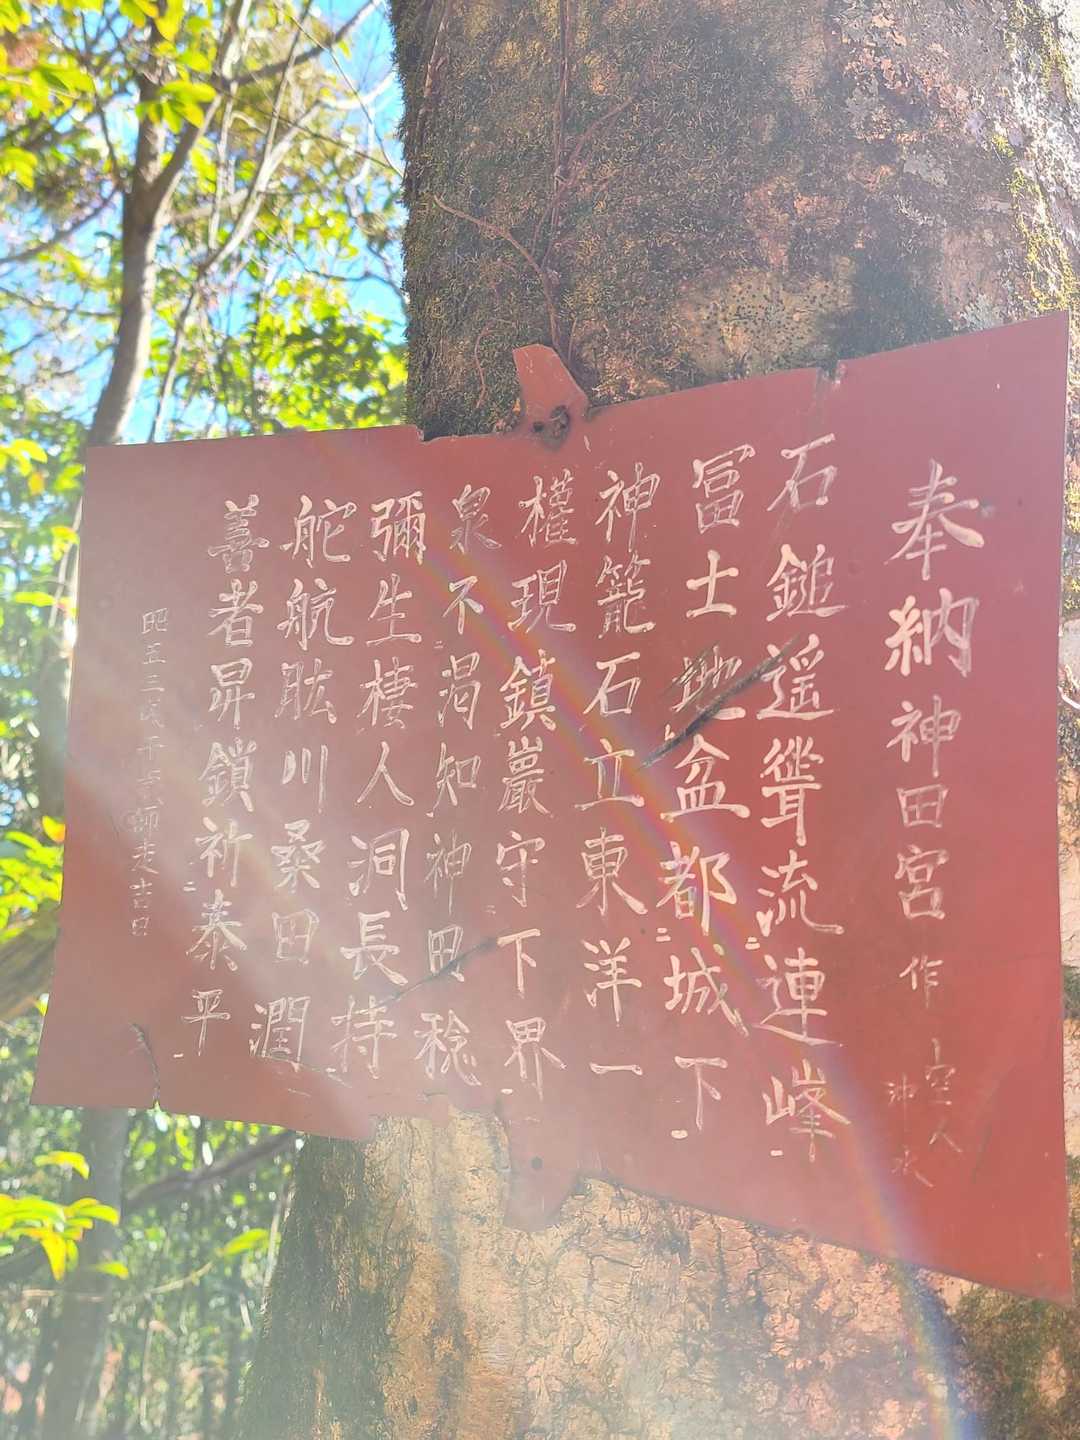 奉納神田宮作
石鎚遥聳流連峰
冨士地盆都城下
神籠石立東洋一
權現鎮巖守下界
泉不渇知神田稔
彌生棲人洞長持
舵航肱川桑田潤
善者昇鎖祈泰平
昭五三戊午弐師走吉日